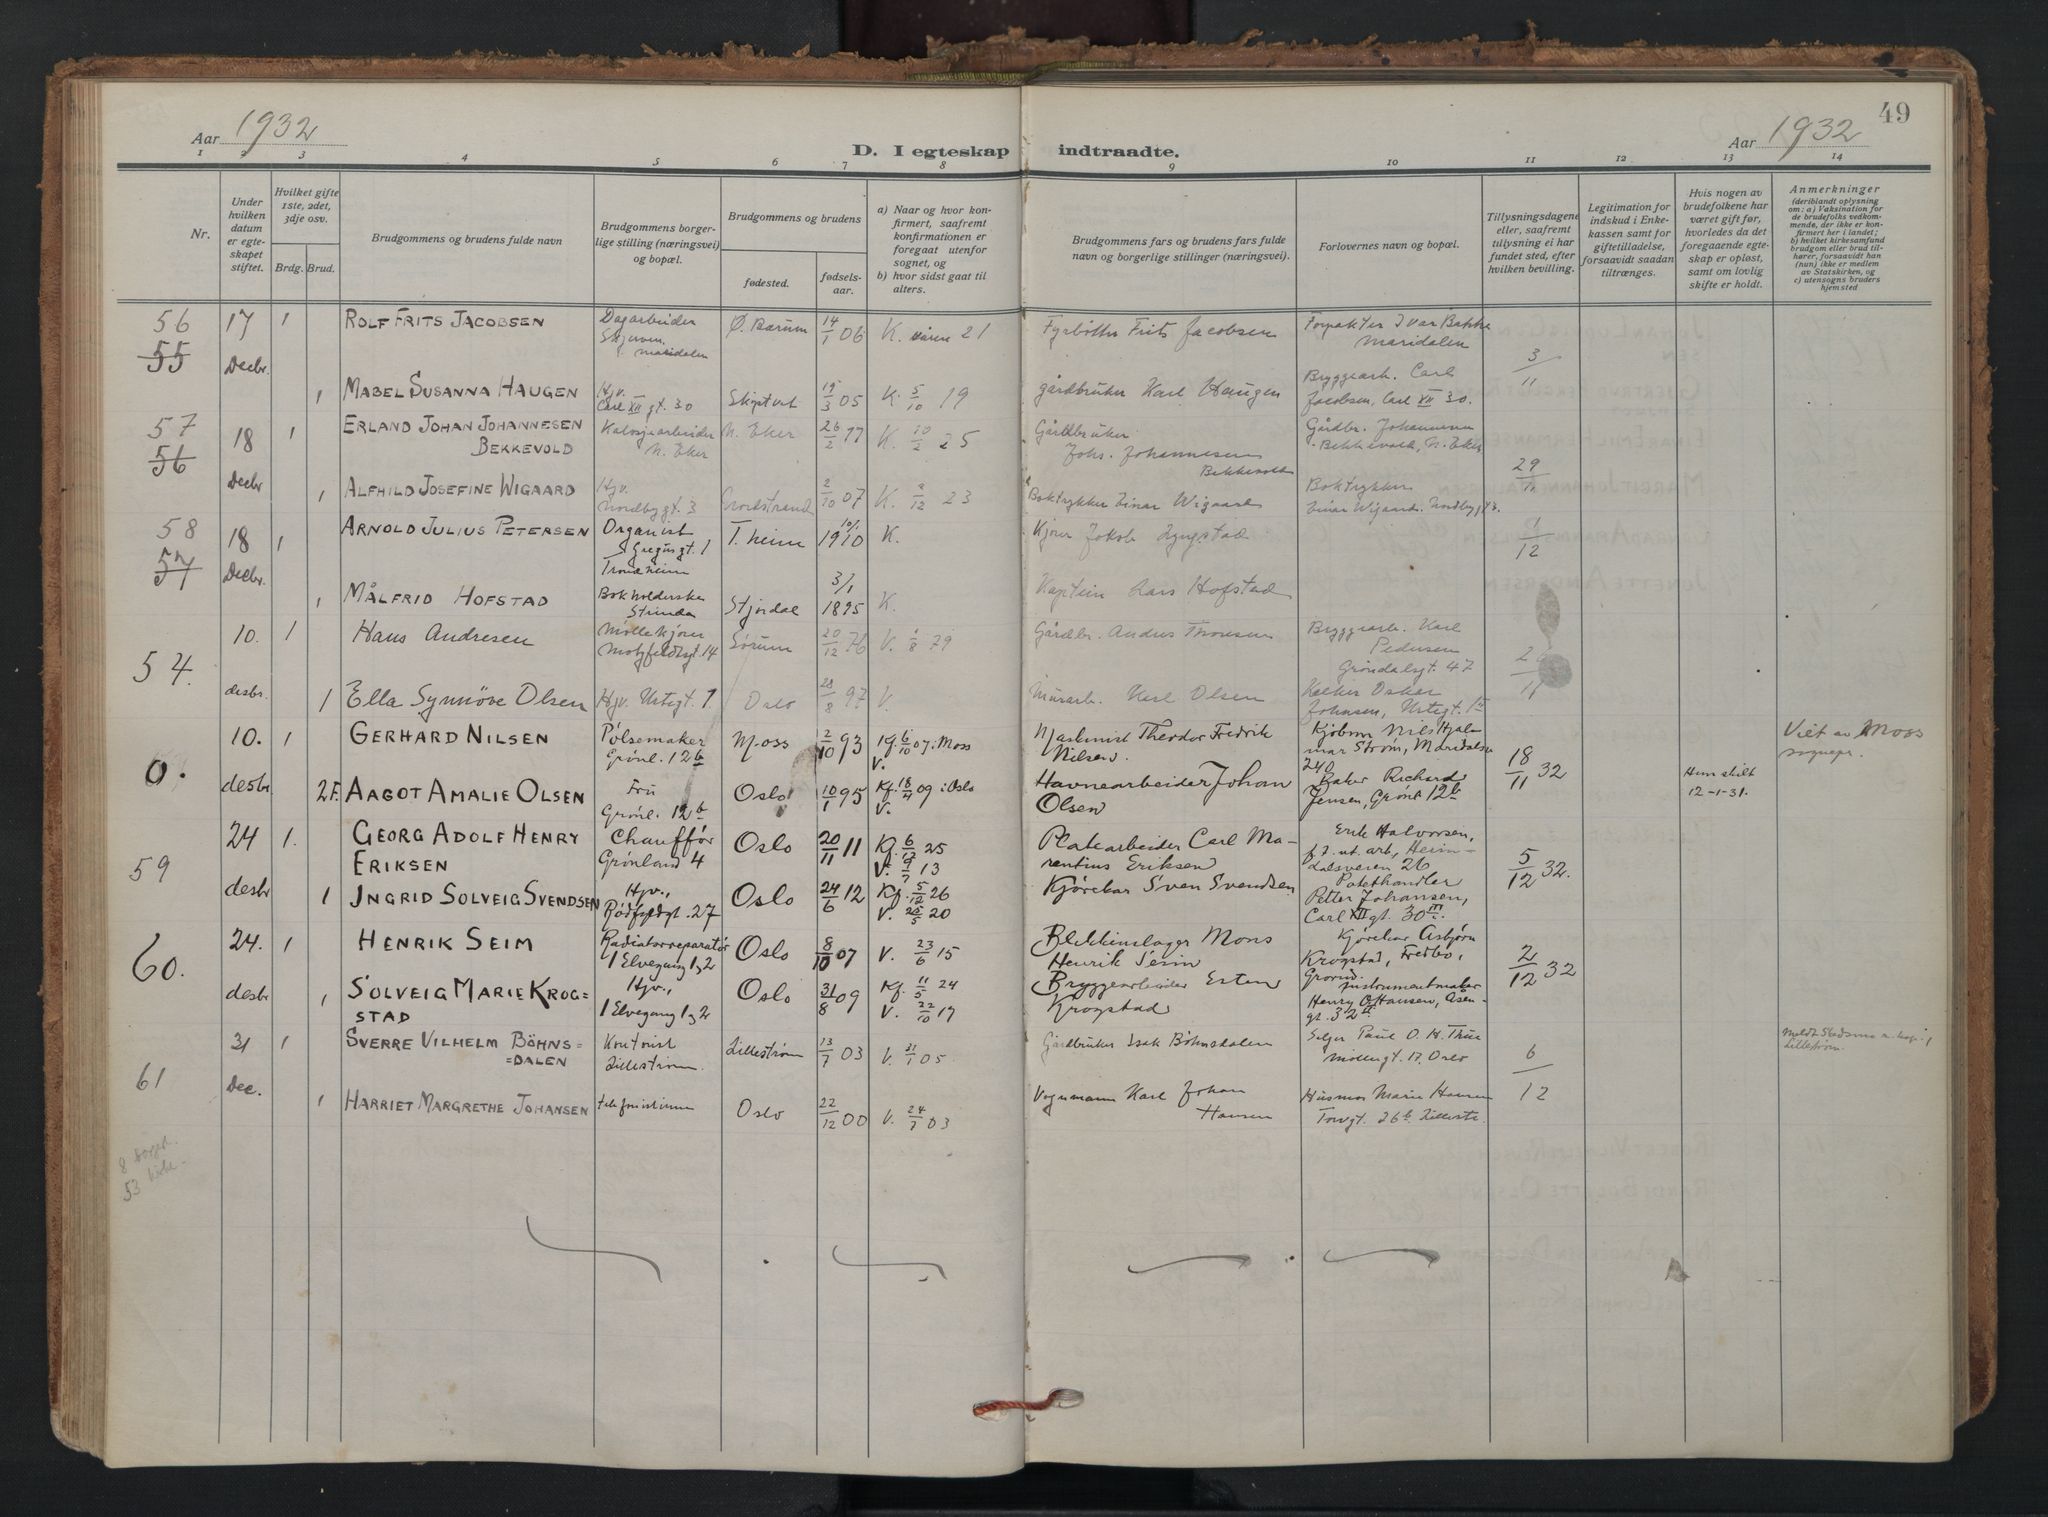 49
Aar 1932
Aar 1932
D. I egteskap indtraadte.
1 2 3 4 5 6 7 8 9 10 11 12 13 14
Nr.
Under hvilken datum er egteskapet stiftet.
Hvilket gifte 1ste, 2det, 3dje osv.
Brdg. Brud.
Brudgommens og brudens fulde navn
Brudgommens borgerlige stilling (næringsvei) og bopæl.
Brudgommens og brudens
fødested.
fødselsaar.
a) Naar og hvor konfirmert, saafremt konfirmationen er foregaat utenfor sognet, og
b) hvor sidst gaat til alters.
Brudgommens fars og brudens fars fulde navn og borgerlige stillinger (næringsvei).
Forlovernes navn og bopæl.
Tillysningsdagene eller, saafremt tillysning ei har fundet sted, efter hvilken bevilling.
Legitimation for indskud i Enkekassen samt for giftetilladelse, forsaavidt saadan tiltrænges.
Hvis nogen av brudefolkene har været gift før, hvorledes da det foregaaende egteskap er opløst, samt om lovlig skifte er holdt.
Anmerkninger
(deriblandt oplysning om: a) Vaksination for de brudefolks vedkommende, der ikke er konfirmert her i landet; b) hvilket kirkesamfund brudgom eller brud tilhører, forsaavidt han (hun) ikke er medlem av Statskirken, og c) utensogns bruders hjemsted
56 55 17 Decbr. 1 ROLF FRITS JACOBSEN Dagarbeider Skjerven, Maridalen Ø. Bærum 14/1 06 K. 21 Fyrbøter Frits Jacobsen Forpakter Ivar Bakke Maridalen 3/11
1 MABEL SUSANNA HAUGEN Hjv. Carl XII gt. 30 Skiptvet 19/3 05 K. 5/10 19 gårdbruker Karl Haugen Bryggearb. Carl Jacobsen, Carl XII 30.
57 56 18 Decbr 1 ERLAND JOHAN JOHANNESEN BEKKEVOLD N. Eker N. Eker 26/2 97 K. 10/2 25 Gårdbruker Johs. Johannesen Bekkevold Gårdbr. Johannesen Bekkevold, N. Eker 29/11
1 ALFHILD JOSEFINE WIGAARD Hjv. Nordbygt. 3 Nordstrand 2/10 07 K. 2/12 23 Boktrykker Einar Wigaard Boktrykker Einar Wigaard. Nordbygt 3.
58 57 18 Decbr. 1 ARNOLD JULIUS PETERSEN Organist Gregusgt. 1 Trondheim T.heim 10/1 1910 K. Kjører Jakob Lyngstad 1/12
1 MÅLFRID HOFSTAD Bokholderske Strinda Stjørdal 3/1 1895 K. Kaptein Lars Hofstad
54. 10. desbr. 1 Hans Andresen Møllekjører Motzfeldtsgt. 14 Sørum 20/12 76 V. 6/8 79 Gårdbr. Andres Thoresen Bryggearb. Karl Pedersen Grøndalsgt. 47 26/11
1 Ella Synnöve Olsen Hjv. Urtegt. 1 Oslo 28/8 97 V. Murarb. Karl Olsen Oskar Johnsen, Urtegt. 1 II
0. 10. desbr 1 GERHARD NILSEN Pølsemaker Grønl. 12 b Moss 2/10 93 Kf. 6/10 07 i Moss V. Maskinist Theodor Fredrik Nilsen. Kjøbm Nils Hjalmar Strøm, Maridalsv 240 18/11 32 Viet av Moss sognepr.
2 F. AAGOT AMALIE OLSEN Fru Grønl. 12 b Oslo 10/1 95 Kf. 18/4 09 i Oslo V. Havnearbeider Johan Olsen Baker Richard Jensen, Grønl 12 b Hun skilt 12-1-31.
59 24 desbr 1. GEORG ADOLF HENRY ERIKSEN Chauffør Grønland 4 Oslo 20/11 11 Kf. 6/12 25 V. 9/7 13 Platearbeider Carl Marentius Eriksen Erik Halvorsen, f.t. ut. arb, Heimdalsveien 26 5/12 32.
1 INGRID SOLVEIG SVENDSEN Hjv., Rødfyldgt. 27 Oslo 24/6 12 Kf. 5/12 26 V. 25/5 20 Kjørekar Sven Svendsen Potethandler Petter Johansen, Carl XII gt. 30 III.
60. 24. desbr 1 HENRIK SEIM Radiatorreparatør 1 Elvegang 1, 2 Oslo 8/10 07 V. 23/6 15 Blikkenslager Mons Henrik Seim Kjørekar Asbjørn Krogstad, Fredbo, Grorud. 2/12 32
1 SOLVEIG MARIE KROG=STAD Hjv., 1 Elvegang 1, 2 Oslo 31/8 09 Kf. 11/5 24 V. 22/10 17 Bryggearbeider Esten Krogstad Instrumentmaker Henry O. Hansen, Åsengt. 32 II
61 31 Dec. 1 SVERRE VILHELM BÖHNS==DALEN Kontorist Lillestrøm. Lillestrøm 13/7 03 V. 31/1 05 Gårdbruker Isak Böhnsdalen Selger Paul O. H. Thue Møllergt. 17, Oslo 6/12 Meldt Lillestrøm.
1 HARRIET MARGRETHE JOHANSEN telefonistinne Oslo 22/12 00 V. 24/7 03 Vognmann Karl Johan Hansen Husmor Marie Hansen Torvgt. 26 b. Lillestr.
8 borgel.
53 kirke.